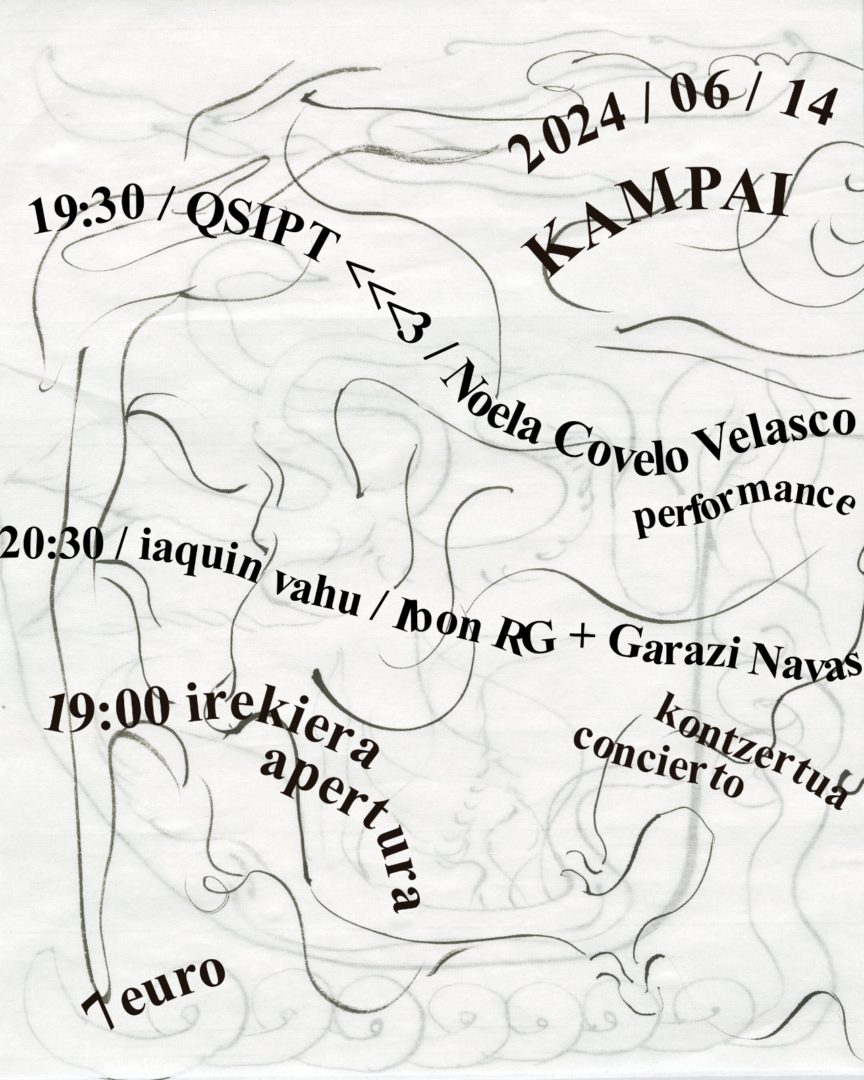 2024 / 06 / 14
KAMPAI
19:30 / QSIPT <<<3 / Noela Covelo Velasco
performance
20:30 / iaquin vahu / Ibon RG + Garazi Navas
kontzertua
concierto
19:00 irekiera
apertura
7 euro